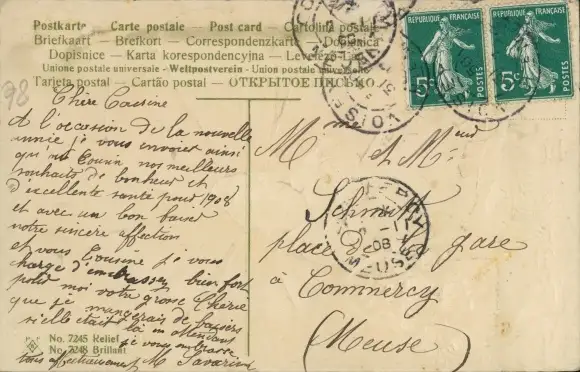 Postkarte — Carte postale — Post card — Cartolina postale
Briefkaart — Brefkort — Correspondenzkarte — Dopisnica
Dopisnice — Karta korespondencyjna — Levelező-Lap
Unione postale universale - Weltpostverein - Union postale universelle
Tarjeta postal — Cartão postal — ОТКРЫТОЕ ПИСЬМО
98
Chère Cousine
A l'occasion de la nouvelle
année je vous envoies ainsi
qu'au Cousin nos meilleurs
souhaits de bonheur et
d'excellente santé pour 1908
et avec un bon baiser
votre sincère affection
et vous Cousine je vous
charge d'embrasser bien fort
pour moi votre grosse Chérie
que je mangerais de baisers
si elle était là en attendant
je vous embrasse
tous affectueusement M
No. 7245 Relief
No. 7248 Brillant
REPUBLIQUE FRANÇAISE
5c POSTES
REPUBLIQUE FRANÇAISE
5c POSTES
Mme et Mr
Schmitt
place de la gare
à Commercy
(Meuse)
COMMERCY
MEUSE